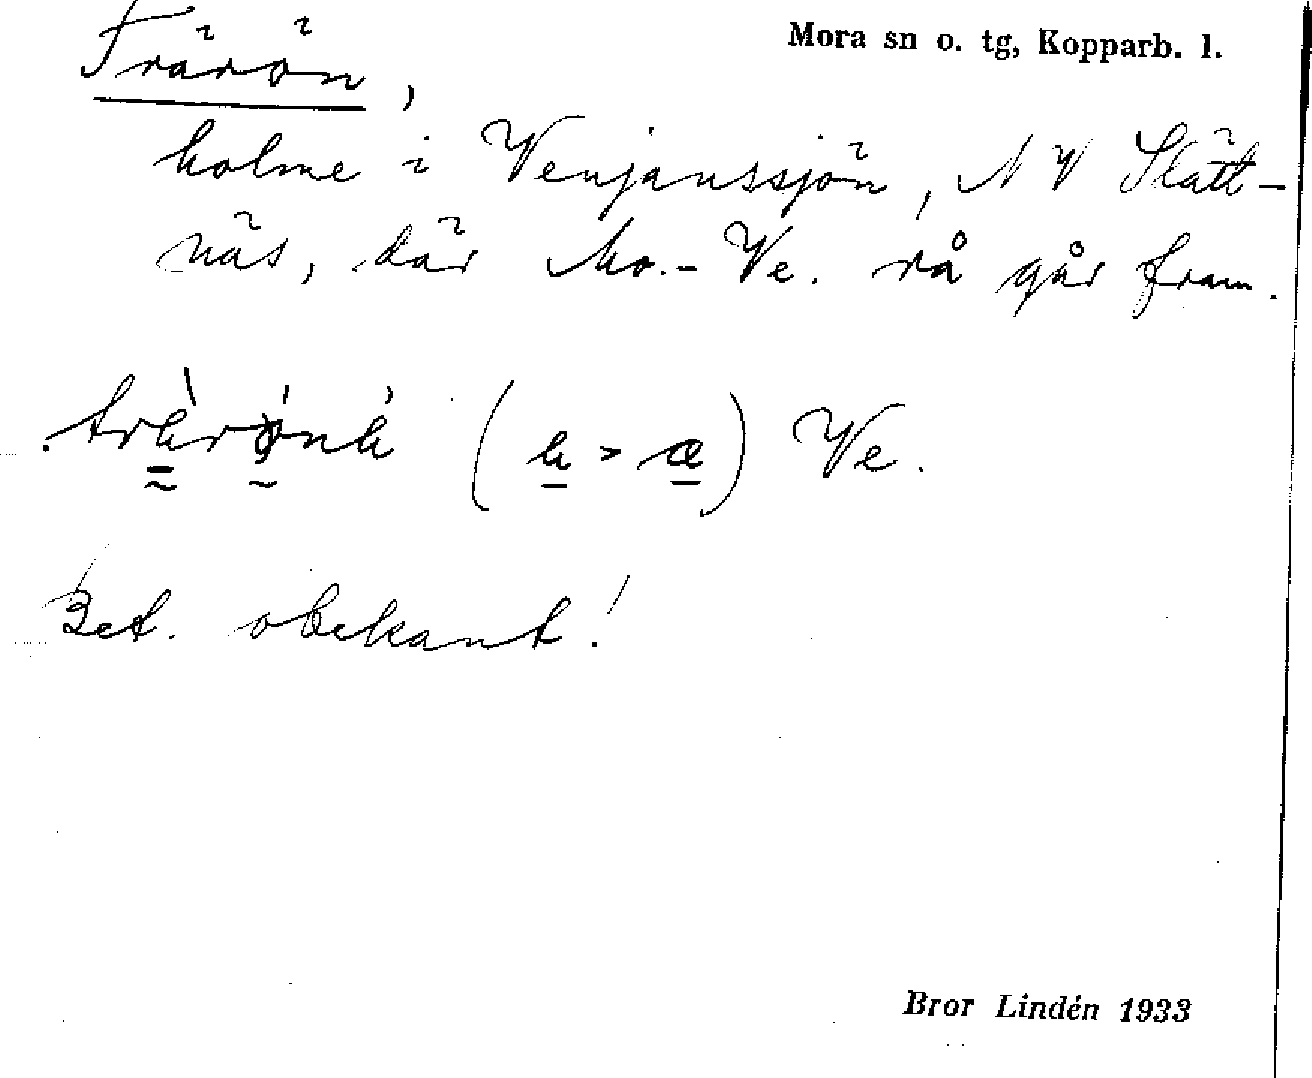 Trärön,
Mora sn o. tg, Kopparb. l.
holme i Venjanssjön, NV Slätt-
näs, där Mo.-Ve. rå går fram.
( > æ) Ve.
Bet. obekant!
Bror Lindén 1933